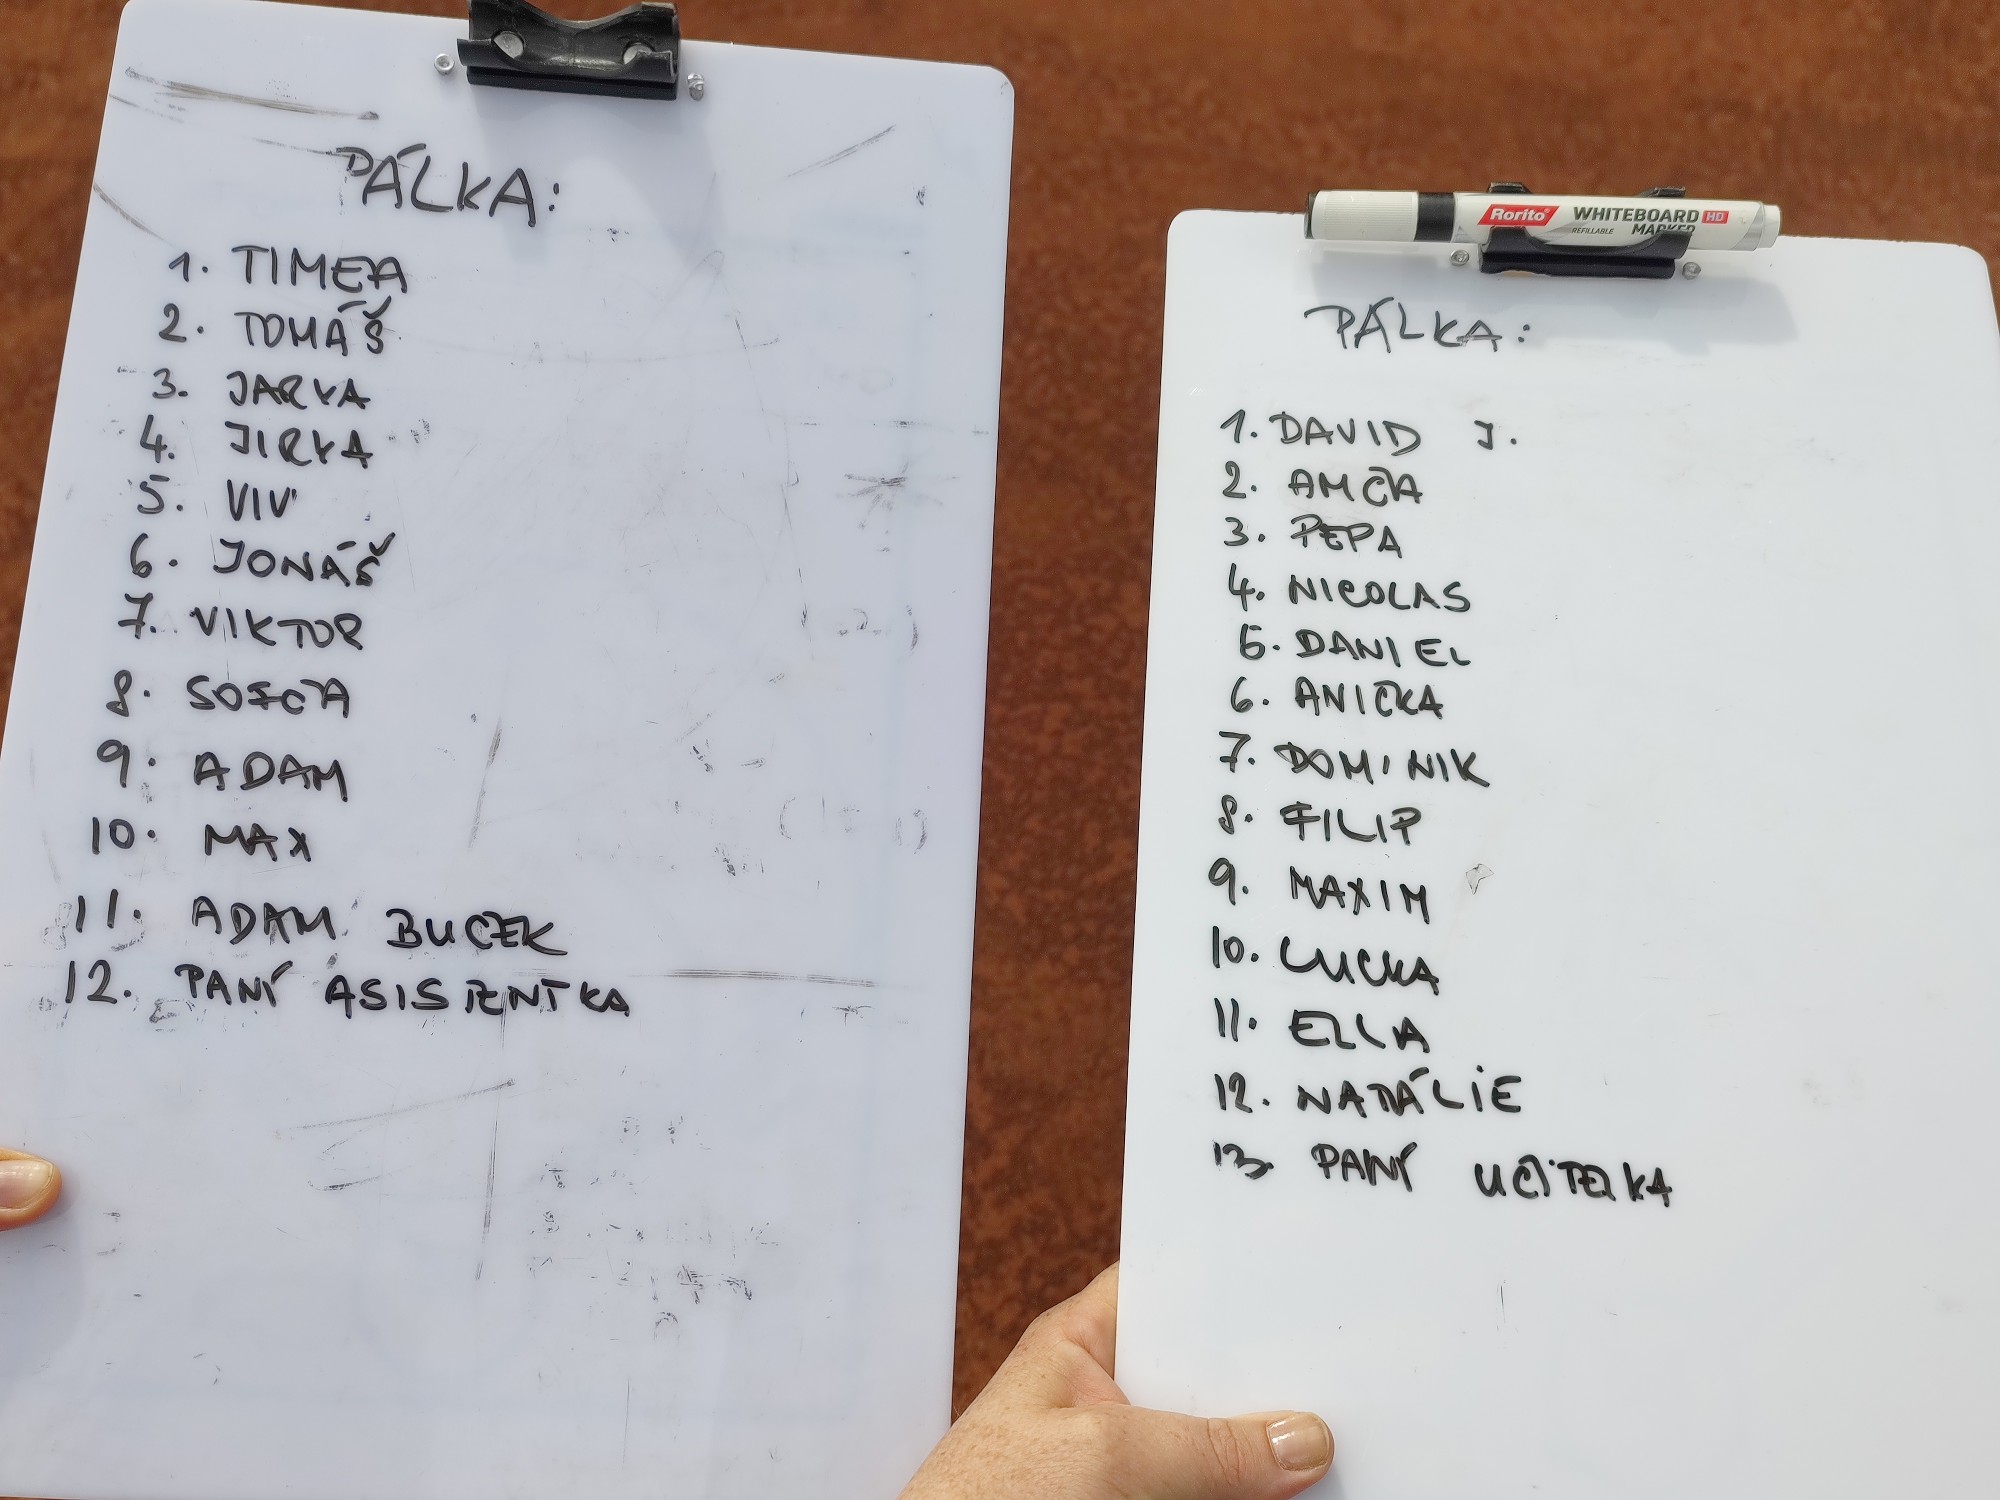 PÁLKA:
1. TIMEA
2. TOMÁŠ
3. JARKA
4. JIRKA
5. VIV
6. JONÁŠ
7. VIKTOR
8. SOFČA
9. ADAM
10. MAX
11. ADAM BUCEK
12. PANÍ ASISTENTKA
Rorito WHITEBOARD HD
REFILLABLE MARKER
PÁLKA:
1. DAVID J.
2. AMČA
3. PEPA
4. NICOLAS
5. DANIEL
6. ANIČKA
7. DOMINIK
8. FILIP
9. MAXIM
10. LUCKA
11. ELLA
12. NATÁLIE
13. PANÍ UČITELKA